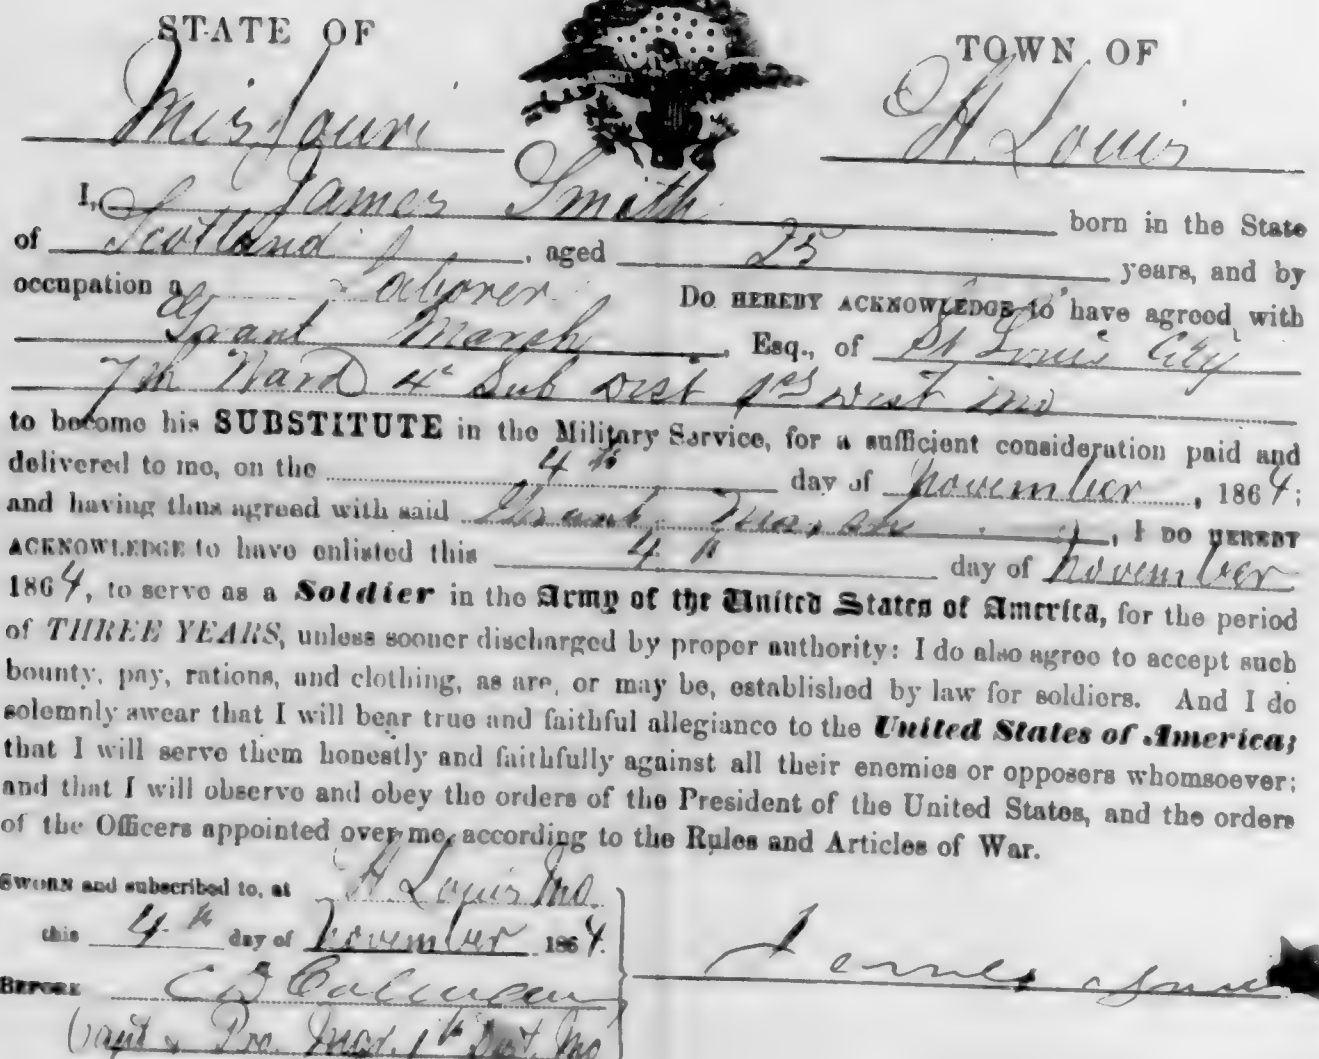 STATE OF
TOWN OF
Missouri
St. Louis
I, James Smith born in the State
of Scotland, aged 25 years, and by
occupation a Laborer Do HEREBY ACKNOWLEDGE to have agreed with
Grant Marsh, Esq., of St Louis City
7th Ward 4th Sub Dist 1st Dist Mo
to become his SUBSTITUTE in the Military Service, for a sufficient consideration paid and
delivered to me, on the 4th day of November, 1864;
and having thus agreed with said Grant Marsh, I DO HEREBY
ACKNOWLEDGE to have enlisted this 4th day of November
1864, to serve as a Soldier in the Army of the United States of America, for the period
of THREE YEARS, unless sooner discharged by proper authority: I do also agree to accept such
bounty, pay, rations, and clothing, as are, or may be, established by law for soldiers. And I do
solemnly swear that I will bear true and faithful allegiance to the United States of America;
that I will serve them honestly and faithfully against all their enemies or opposers whomsoever;
and that I will observe and obey the orders of the President of the United States, and the orders
of the Officers appointed over me, according to the Rules and Articles of War.
SWORN and subscribed to, at St Louis Mo.
this 4th day of November 1864.
BEFORE C D
Capt & Pro. Mar. 1st Dist. Mo